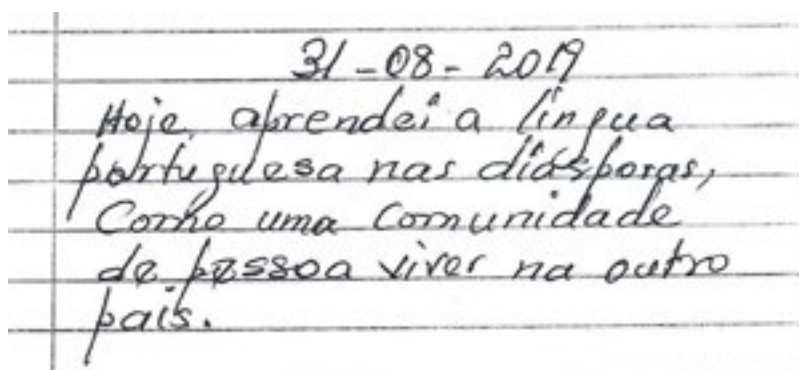 31-08-2019
Hoje, aprendei a língua
portuguesa nas diásporas,
Como uma comunidade
de pessoa viver na outro
país.